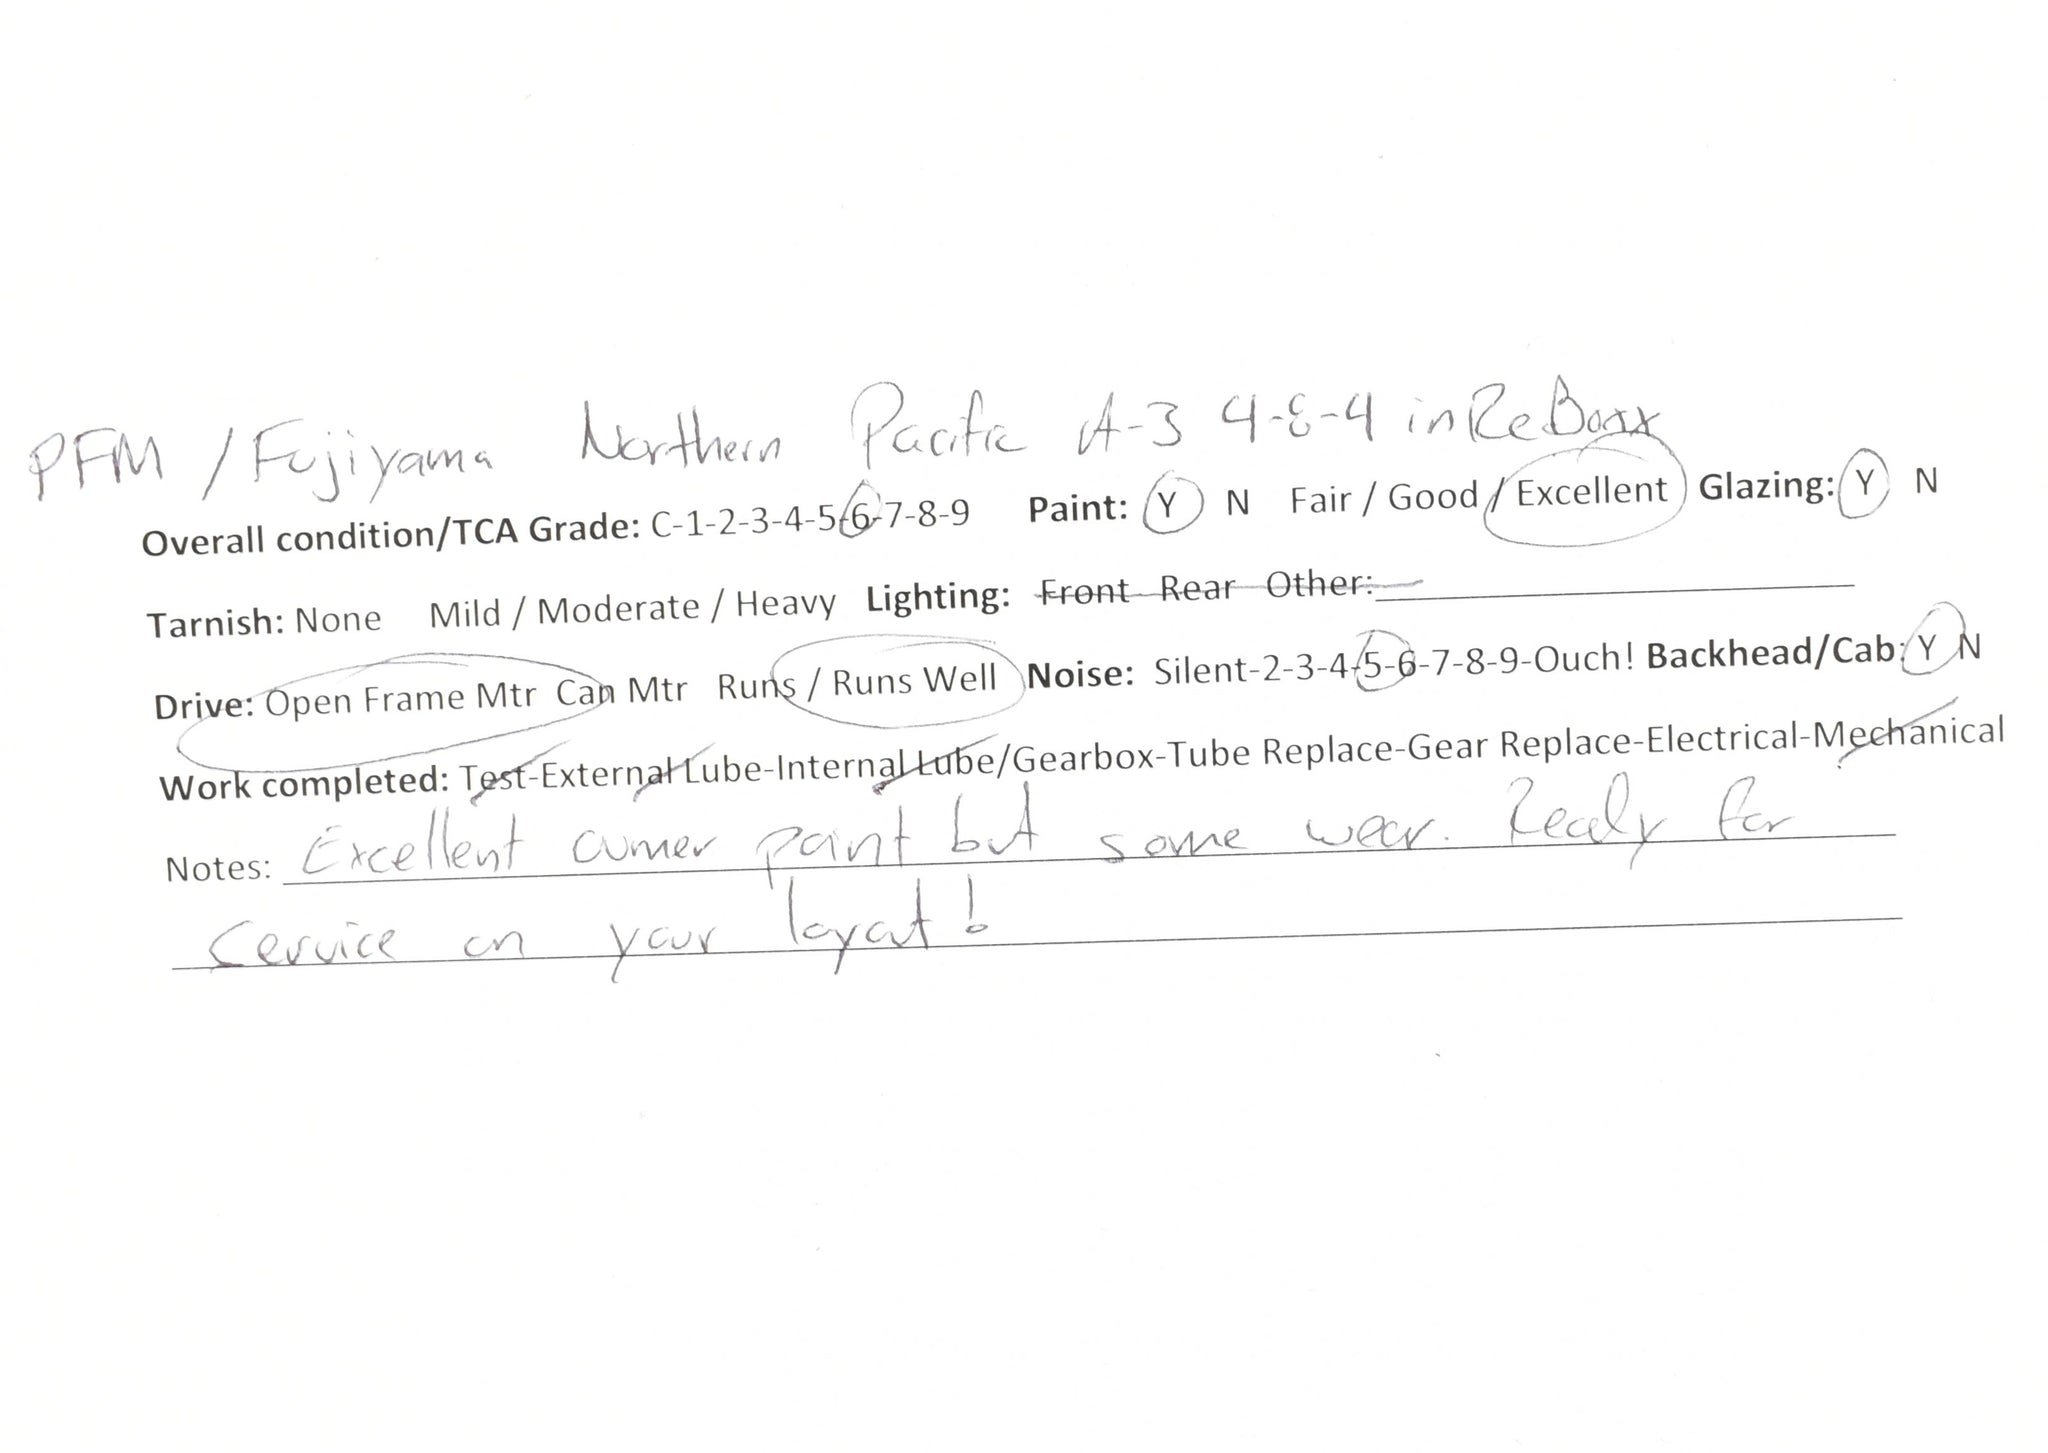 PFM / Fujiyama Northern Pacific A-3 4-8-4 in ReBoxx
Overall condition/TCA Grade: C-1-2-3-4-5-6-7-8-9 Paint: Y N Fair / Good / Excellent Glazing: Y N
Tarnish: None Mild / Moderate / Heavy Lighting: Front Rear Other:
Drive: Open Frame Mtr Can Mtr Runs / Runs Well Noise: Silent-2-3-4-5-6-7-8-9-Ouch! Backhead/Cab: Y N
Work completed: Test-External Lube-Internal Lube/Gearbox-Tube Replace-Gear Replace-Electrical-Mechanical
Notes: Excellent owner paint but some wear. Ready for
service on your layout!